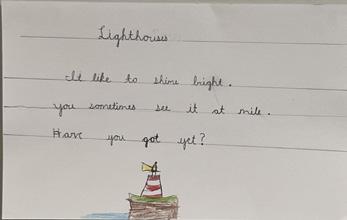 Lighthouses
It like to shine bright.
you sometimes see it at mile.
Have you got yet?